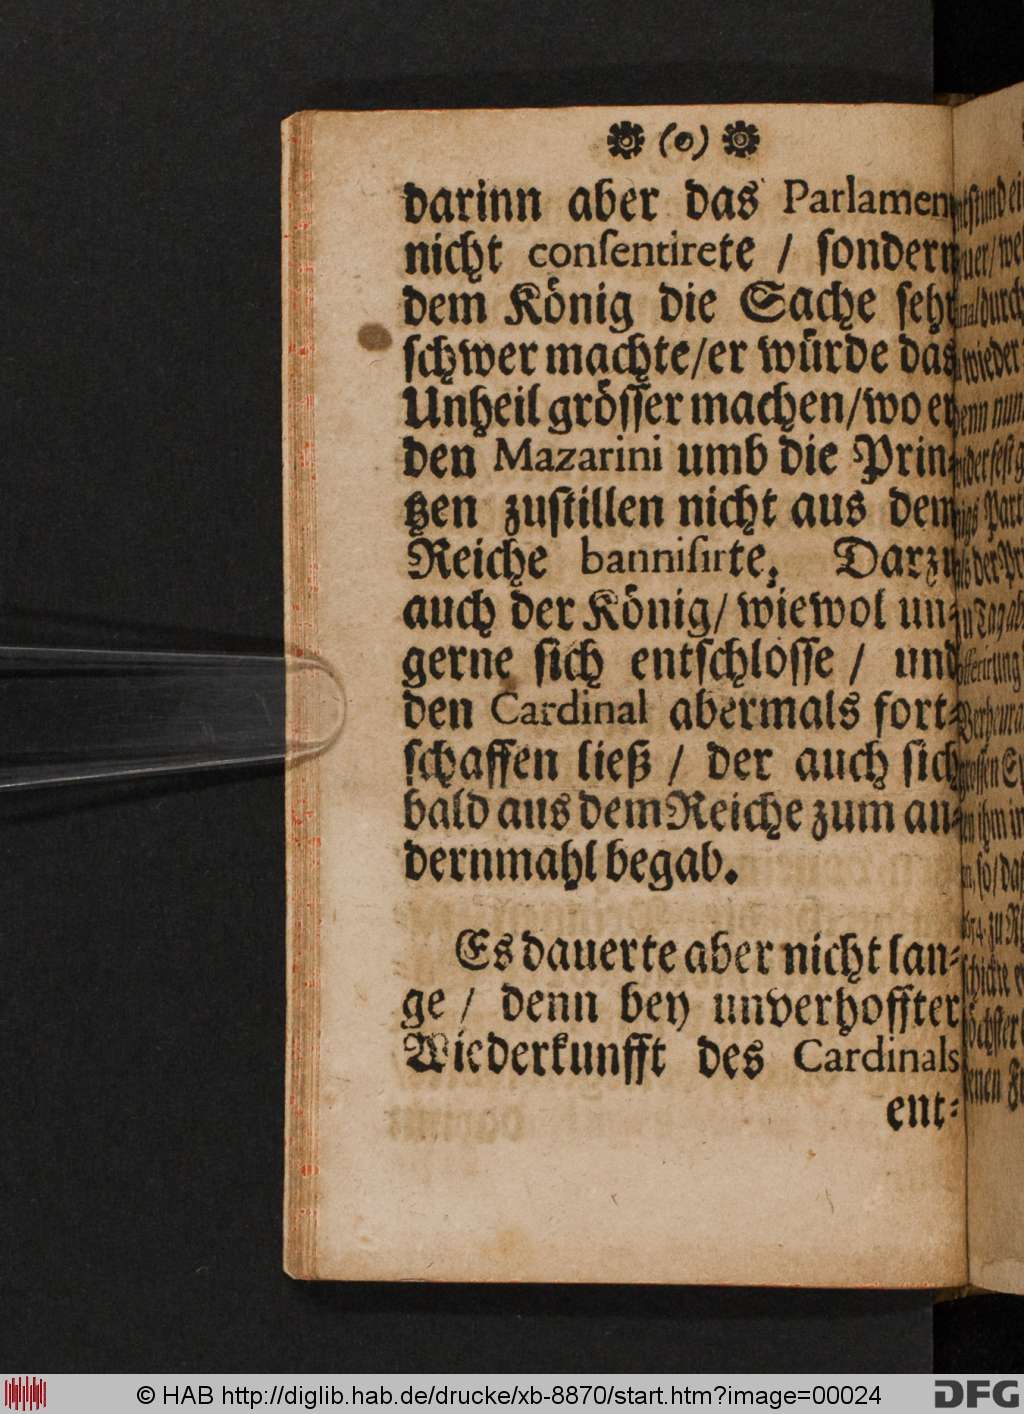 (o)
darinn aber das Parlamen
nicht conſentirete / ſondern
dem König die Sache ſehr
ſchwer machte/er würde das
Unheil gröſſer machen/wo er
den Mazarini umb die Prin⸗
tzen zuſtillen nicht aus dem
Reiche banniſirte, Darzu
auch der König/ wiewol un⸗
gerne ſich entſchloſſe / und
den Cardinal abermals fort⸗
ſchaffen ließ / der auch ſich
bald aus dem Reiche zum an⸗
dernmahl begab.
Es dauerte aber nicht lan⸗
ge / denn bey unverhoffter
Wiederkunfft des Cardinals
ent⸗
© HAB http://diglib.hab.de/drucke/xb-8870/start.htm?image=00024
DFG